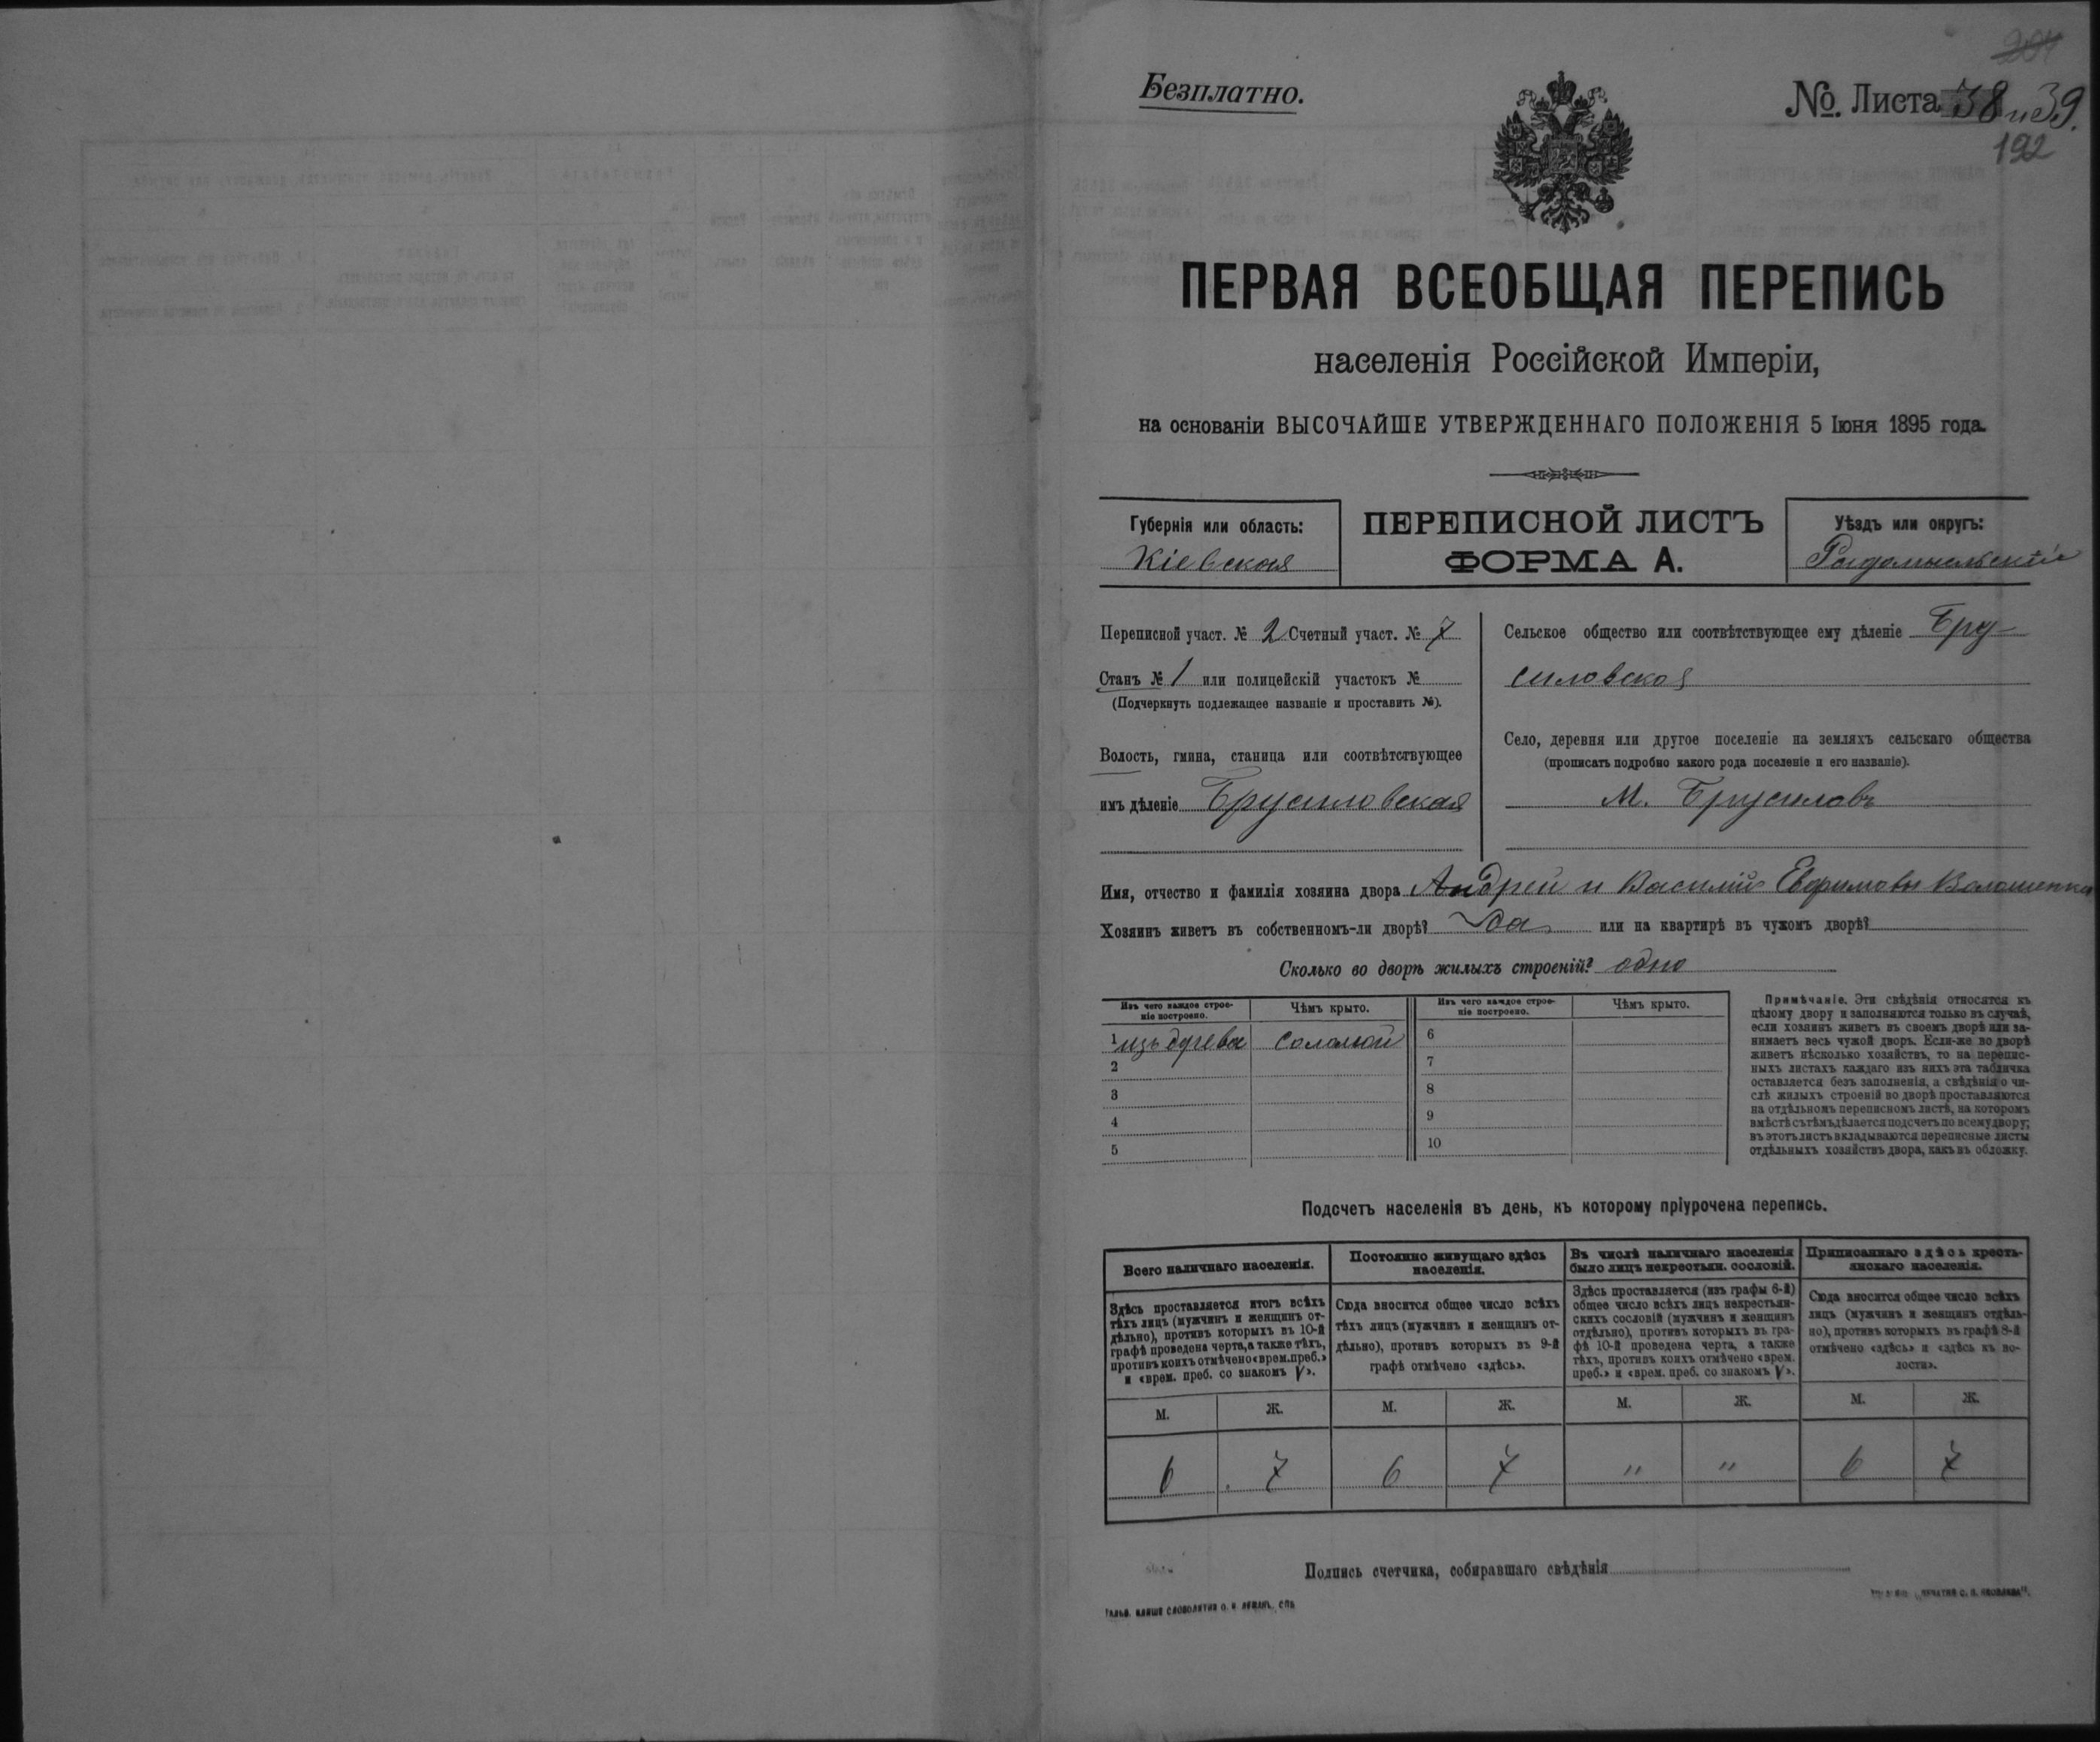 Безплатно.
№. Листа 38 и 39.
192
ПЕРВАЯ ВСЕОБЩАЯ ПЕРЕПИСЬ
населенія Россійской Имперіи,
на основаніи ВЫСОЧАЙШЕ УТВЕРЖДЕННАГО ПОЛОЖЕНІЯ 5 Іюня 1895 года.
Губернія или область:
Кіевская
ПЕРЕПИСНОЙ ЛИСТЪ
ФОРМА А.
Уѣздъ или округъ:
Радомысльскій
Переписной участ. № 2 Счетный участ. № 7
Станъ № 1 или полицейскій участокъ №
(Подчеркнуть подлежащее названіе и проставить №).
Волость, гмина, станица или соотвѣтствующее
имъ дѣленіе Брусиловская
Сельское общество или соотвѣтствующее ему дѣленіе Бру-
силовская
Село, деревня или другое поселеніе на земляхъ сельскаго общества
(прописать подробно какого рода поселеніе и его названіе).
М. Брусиловъ
Имя, отчество и фамилія хозяина двора Андрей и Василій Ефимовы
Хозяинъ живетъ въ собственномъ-ли дворѣ? Да или на квартирѣ въ чужомъ дворѣ?
Сколько во дворѣ жилыхъ строеній? одно
Изъ чего каждое строе-
ніе построено.
Чѣмъ крыто.
Изъ чего каждое строе-
ніе построено.
Чѣмъ крыто.
1 изъ дерева соломой 6
2 7
3 8
4 9
5 10
Примѣчаніе. Эти свѣдѣнія относятся къ
цѣлому двору и заполняются только въ случаѣ,
если хозяинъ живетъ въ своемъ дворѣ или за-
нимаетъ весь чужой дворъ. Если-же во дворѣ
живетъ нѣсколько хозяйствъ, то на перепис-
ныхъ листахъ каждаго изъ нихъ эта табличка
оставляется безъ заполненія, а свѣдѣнія о чи-
слѣ жилыхъ строеній во дворѣ проставляются
на отдѣльномъ переписномъ листѣ, на которомъ
вмѣстѣ съ тѣмъ дѣлается подсчетъ по всему двору;
въ этотъ листъ вкладываются переписные листы
отдѣльныхъ хозяйствъ двора, какъ въ обложку.
Подсчетъ населенія въ день, къ которому пріурочена перепись.
Всего наличнаго населенія.
Здѣсь проставляется итогъ всѣхъ
тѣхъ лицъ (мужчинъ и женщинъ от-
дѣльно), противъ которыхъ въ 10-й
графѣ проведена черта, а также тѣхъ,
противъ коихъ отмѣчено «врем. преб.»
и «врем. преб. со знакомъ V».
Постоянно живущаго здѣсь
населенія.
Сюда вносится общее число всѣхъ
тѣхъ лицъ (мужчинъ и женщинъ от-
дѣльно), противъ которыхъ въ 9-й
графѣ отмѣчено «здѣсь».
Въ числѣ наличнаго населенія
было лицъ некрестьян. сословій.
Здѣсь проставляется (изъ графы 6-й)
общее число всѣхъ лицъ некрестьян-
скихъ сословій (мужчинъ и женщинъ
отдѣльно), противъ которыхъ въ гра-
фѣ 10-й проведена черта, а также
тѣхъ, противъ коихъ отмѣчено «врем.
преб.» и «врем. преб. со знакомъ V».
Приписаннаго здѣсь кресть-
янскаго населенія.
Сюда вносится общее число всѣхъ
лицъ (мужчинъ и женщинъ отдѣль-
но), противъ которыхъ въ графѣ 8-й
отмѣчено «здѣсь» и «здѣсь къ во-
лости».
М. Ж. М. Ж. М. Ж. М. Ж.
6 7 6 7 " " 6 7
Подпись счетчика, собиравшаго свѣдѣнія